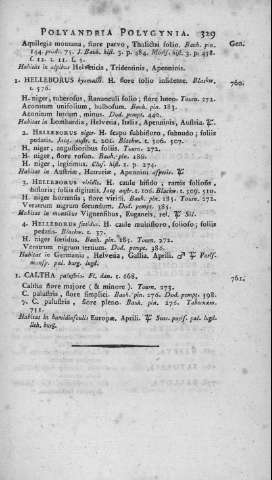 POLYANDRIA POLYGYNIA. 329
Aquilegia montana, flore parvo, Thalictri folio. Bauh. pin. Gen.
144. prodr. 75. J. Bauh. hist. 3. p. 484. Moris. hist. 3. p. 458.
Habitat in alpibus Helveticis, Tridentinis, Apenninis.
1. HELLEBORUS hyemalis. H. flore folio insidente. Blackw. 760.
t. 576.
H. niger, tuberosus, Ranunculi folio; flore luteo. Tourn. 272.
Aconitum unifolium, bulbosum. Bauh. pin. 183.
Aconitum luteum, minus. Dod. pempt. 440.
Habitat in Lombardiae, Helvetiae, Italiae, Apenninis, Austria.
2. HELLEBORUS niger. H. scapo subbifloro, subnudo; foliis
pedatis. Jacq. austr. t. 201. Blackw. t. 506. 507.
H. niger, angustioribus foliis. Tourn. 272.
H. niger, flore roseo. Bauh. pin. 186.
H. niger, legitimus. Clus. hist. 1. p. 274.
Habitat in Austriae, Hetruriae, Apennini asperis. ♃
3. HELLEBORUS viridis. H. caule bifido; ramis foliosis,
bifloris; foliis digitatis. Jacq. austr. t. 106. Blackw. t. 509. 510.
H. niger hortensis, flore viridi. Bauh. pin. 185. Tourn. 272.
Veratrum nigrum secundum. Dod. pempt. 385.
Habitat in montibus Viennensibus, Euganeis, rel. ♃ Sil.
4. HELLEBORUS foetidus. H. caule multifloro, folioso; foliis
pedatis. Blackw. t. 57.
H. niger foetidus. Bauh. pin. 185. Tourn. 272.
Veratrum nigrum tertium. Dod. pempt. 386.
Habitat in Germania, Helvetia, Gallia. Aprili. ♂ ♃ Paris.
monsp. pal. burg. lugd.
1. CALTHA palustris. Fl. dan. t. 668. 761.
Caltha flore majore (& minore). Tourn. 273.
C. palustris, flore simplici. Bauh. pin. 276. Dod. pempt. 598.
γ. C. palustris, flore pleno. Bauh. pin. 276. Tabernaem.
751.
Habitat in humidiusculis Europae, Aprili. ♃ Suec. paris. pal. lugd.
lith. burg.